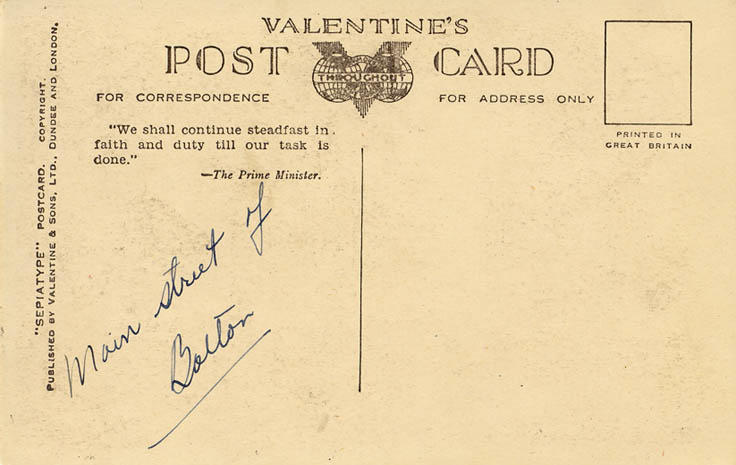 VALENTINE'S
POST CARD
THROUGHOUT
FOR CORRESPONDENCE
FOR ADDRESS ONLY
PRINTED IN
GREAT BRITAIN
"We shall continue steadfast in
faith and duty till our task is
done."
—The Prime Minister.
Main street of
Bolton
"SEPIATYPE" POSTCARD. COPYRIGHT.
PUBLISHED BY VALENTINE & SONS, LTD., DUNDEE AND LONDON.